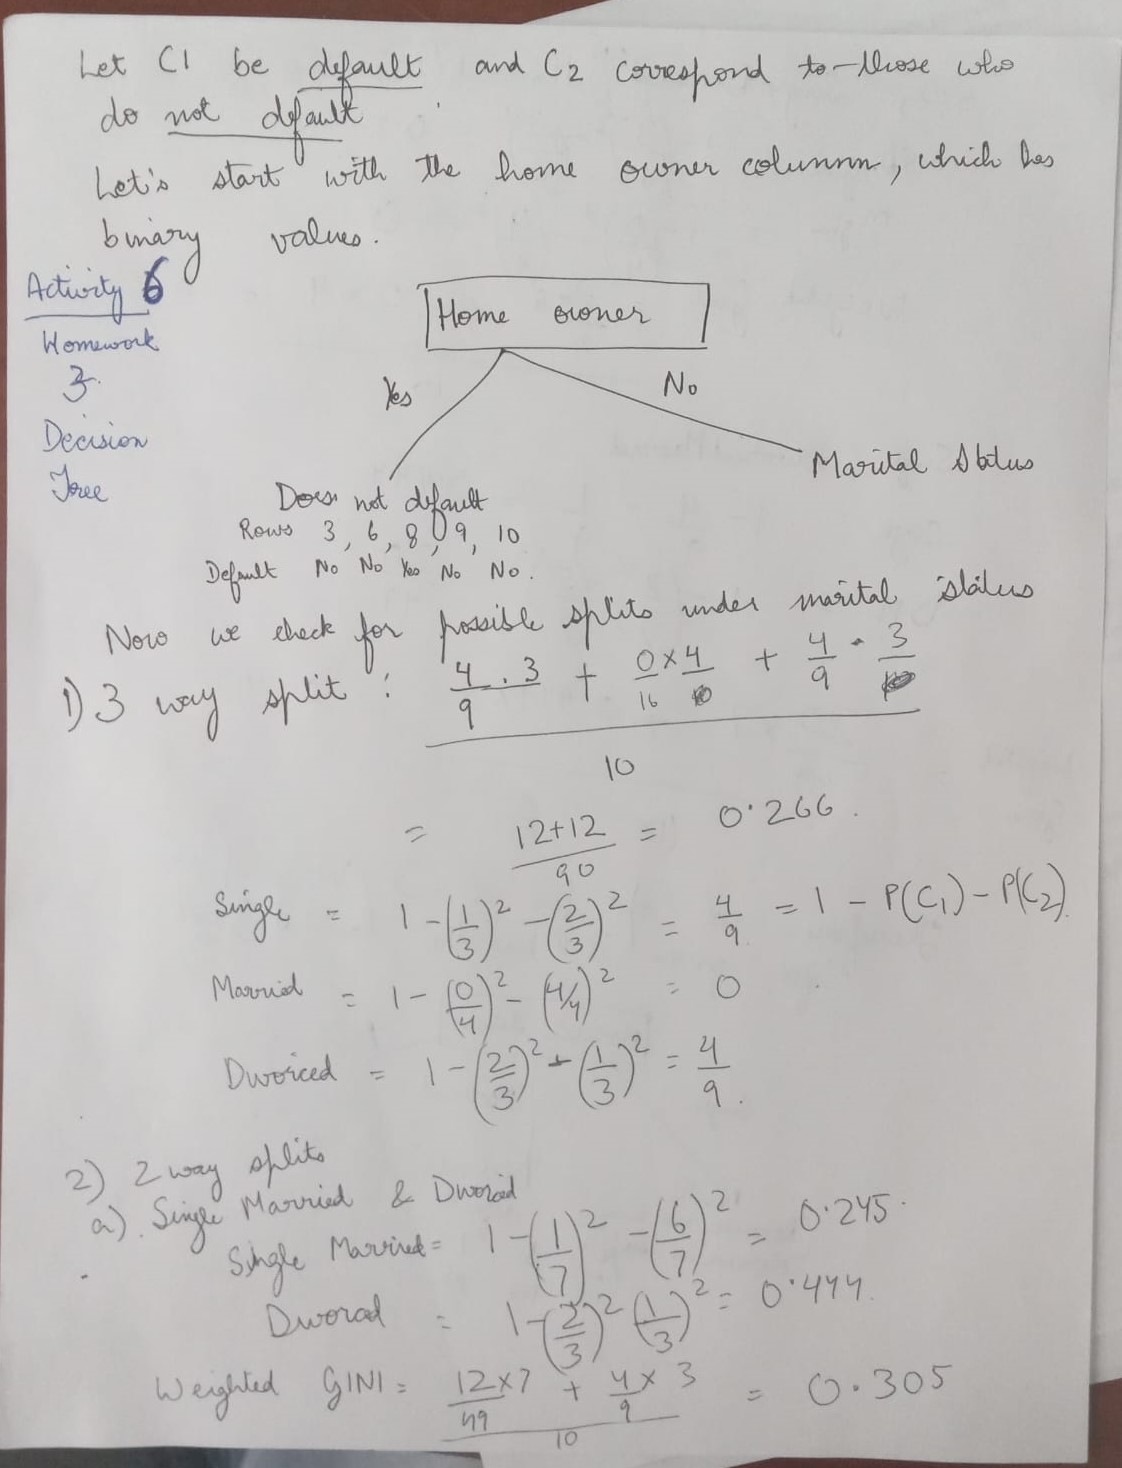 Let C1 be default and C2 correspond to those who
do not default
Let's start with the home owner columnn, which has
binary values.
Activity 6
Homework
3.
Decision
Tree
Home owner
Yes
No
Marital Status
Does not default
Rows 3, 6, 8, 9, 10
Default No No Yes No No.
Now we check for possible splits under marital status
1) 3 way split : 4/9 . 3 + 0/16 x 4 + 4/9 . 3
10
= 12+12/90 = 0.266.
Single = 1 - (1/3)² - (2/3)² = 4/9 = 1 - P(C1) - P(C2)
Married = 1 - (0/4)² - (4/4)² = 0
Divorced = 1 - (2/3)² - (1/3)² = 4/9.
2) 2 way splits
a). Single Married & Divorced
Single Married = 1 - (1/7)² - (6/7)² = 0.245.
Divorced = 1 - (2/3)² (1/3)² = 0.444.
Weighted GINI = 12/49 x 7 + 4/9 x 3 = 0.305
10